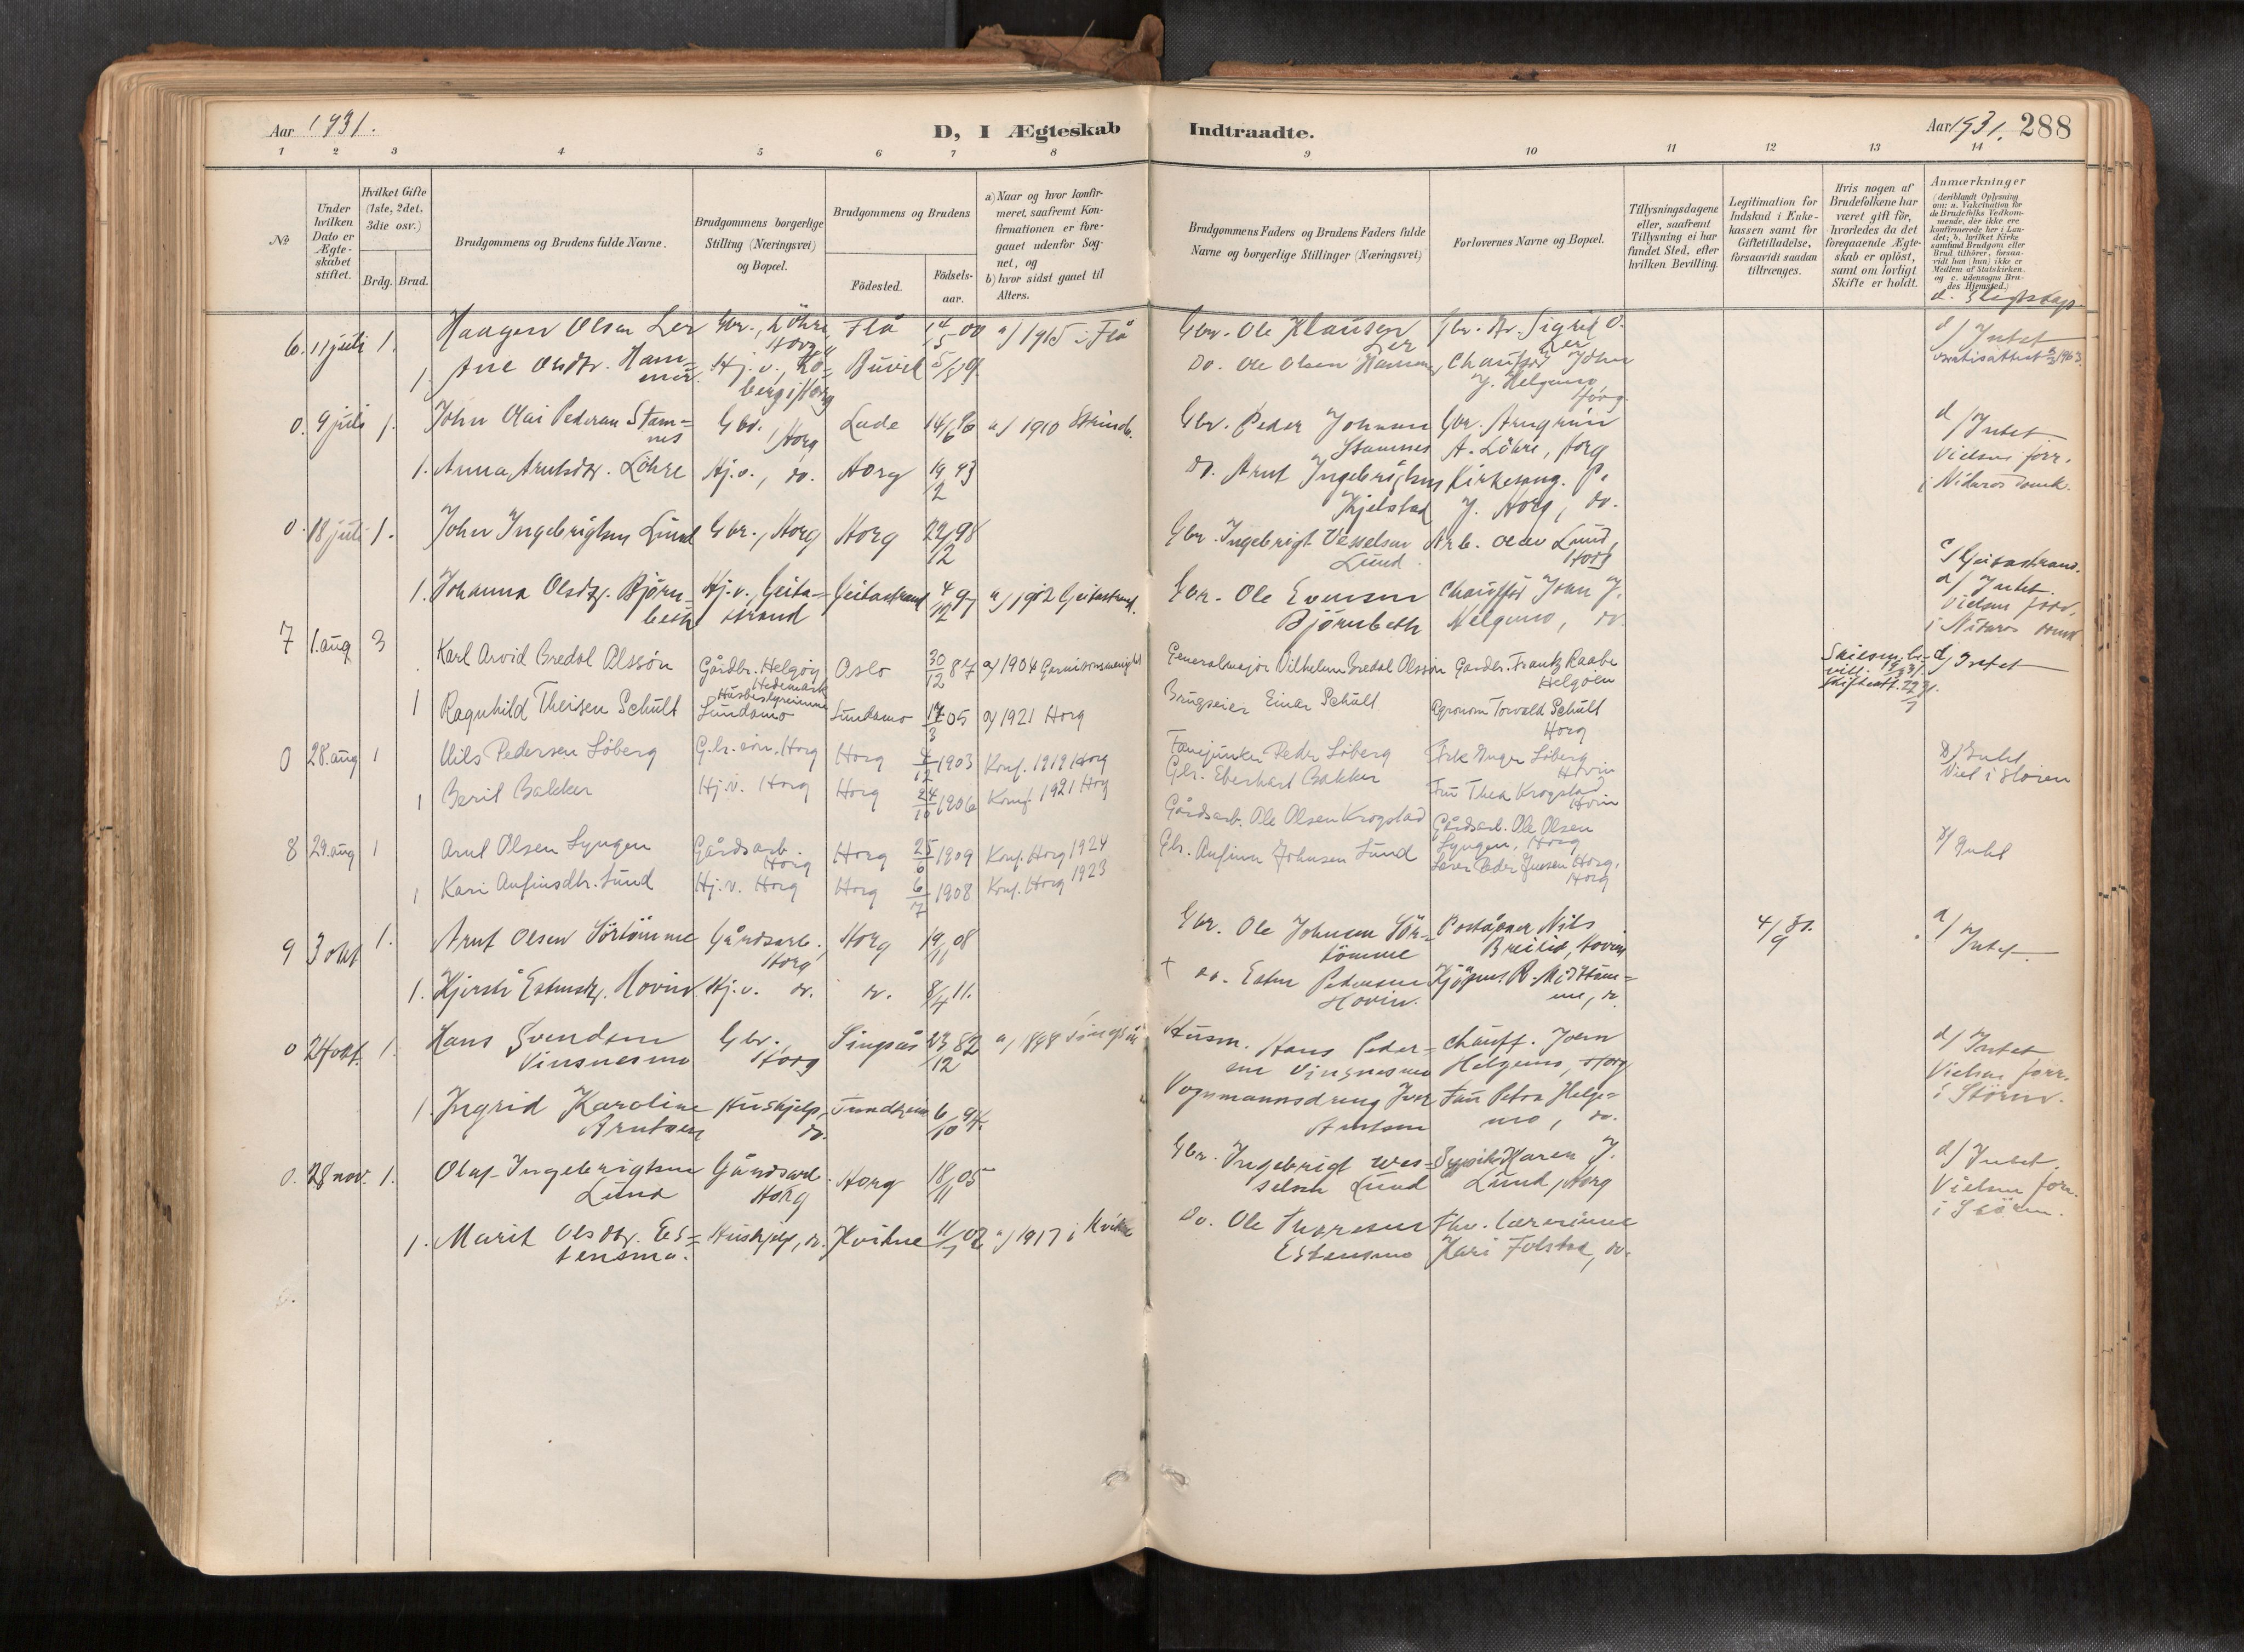 Aar 1931.
D, I Ægteskab
Indtraadte.
Aar 1931. 288
1 2 3 4 5 6 7 8 9 10 11 12 13 14
No
Under hvilken Dato er Ægteskabet stiftet.
Hvilket Gifte (1ste, 2det, 3die osv.)
Brdg. Brud.
Brudgommens og Brudens fulde Navne.
Brudgommens borgerlige Stilling (Næringsvei) og Bopæl.
Brudgommens og Brudens
Födested.
Födselsaar.
a) Naar og hvor konfirmeret, saafremt Konfirmationen er foregaaet udenfor Sognet, og
b) hvor sidst gaaet til Alters.
Brudgommens Faders og Brudens Faders fulde Navne og borgerlige Stillinger (Næringsvei)
Forlovernes Navne og Bopæl.
Tillysningsdagene eller, saafremt Tillysning ei har fundet Sted, efter hvilken Bevilling.
Legitimation for Indskud i Enkekassen samt for Giftetilladelse, forsaavidt saadan tiltrænges.
Hvis nogen af Brudefolkene har været gift før, hvorledes da det foregaaende Ægteskab er oplöst, samt om lovligt Skifte er holdt.
Anmærkninger
(deriblandt Oplysning om: a. Vakcination for de Brudefolks Vedkommende, der ikke ere konfirmerede her i Landet; b. hvilket Kirkesamfund Brudgom eller Brud tilhörer, forsaavidt han (hun) ikke er Medlem af Statskirken, og c. udensogns Brudes Hjemsted.)
d. Slegtskap
6. 11 juli 1. Haagen Olsen Ler Gbr., Löhre Horg Flå 14/5 00 a) 1915 i Flå Gbr. Ole Klausen Ler Ler d) Intet
1. Ane Olsdtr. Hammer Hj.v., Horg Buvik Do. Ole Olsen Hammer Chauffør John J. Helgemo, Horg
0. 9 juli 1. John Olai Pedersen Stamnes Gbr. Horg 14/6 96 a) 1910 Strinda. Gbr. Peder Johnsen Stamnes Gbr. Arngrim A. Löhre, Horg d) Intet
Vielsen forr. i Nidaros domk.
1. Anna Arntsdtr. Löhre Hj.v., do. Horg 19/2 93 do. Arnt Ingebrigtsen Kjelstad Kirkesang. P. J. Horg, do.
0. 18 juli 1. John Ingebrigtsen Lund Gbr., Horg Horg 22/12 98 Gbr. Ingebrigt Vesselsen Lund Arb. Olav Lund, Horg
1. Johanna Olsdtr. Björnbeth Hj.v., Geitastrand Geitastrand 4/12 97 a) 1912 Geitastrand. Gbr. Ole Evensen Björnbeth Chauffør John J. Helgemo, do. c) Geitastrand.
d) Intet.
Vielsen forr. i Nidaros domk
7 1. aug 3 Karl Arvid Bredal Olssön Gårdbr. Helgöy Hedemark Oslo 30/12 87 a) 1904 Garnisonsmenighet Generalmajor Vilhelm Bredal Olssön Gardbr. Frantz Raabe Helgöen d) Intet
1 Ragnhild Theisen Schult Husbestyrerinne Lundamo Lundamo 05 a) 1921 Horg Brugseier Einar Schült Agronom Torvald Schült Horg
0 28. aug 1 Nils Pedersen Løberg G.br. søn. Horg Horg 1903 Konf. 1919 Horg Fanejunker Peder Løberg Frk Inger Løberg Hovin D) Intet
Viet i Støren
1 Berit Bakken Hj.v. Horg Horg 24/10 1906 Konf. 1921 Horg Gbr. Eberhart Bakken Fru Thea Krogstad Hovin
8 29. aug 1 Arnt Olsen Lyngen Gårdsarb. Horg Horg 25/6 1909 Konf. Horg 1924 Gårdsarb. Ole Olsen Krogstad Gårdsarb. Ole Olsen Lyngen, Horg D) Intet
1 Kari Anfinsdtr. Lund Hj.v. Horg Horg 6/7 1908 Konf. Horg 1923 Gbr. Anfinn Johnsen Lund Lærer Peder Horg, Horg
9 3 okt 1. Arnt Olsen Sörtömme Gårdsarb. Horg Horg 19/11 08 Gbr. Ole Johnsen Sörtömme Poståpner Nils Breilid, Hovin 4/9 31. d) Intet
1. Kjersti Estensdtr. Hovin Hj.v. do. do. 8/4 11. † do. Esten Pedersen Hovin. Kjöpm. R. Midttömme, do.
0 24 okt. 1. Hans Svendsen Vinsnesmo Gbr., Horg Singsås 23/12 82 a) 1898 Singsås Husm. Hans Pedersen Vinsnesmo Chauff. John Helgemo, Horg d) Intet
Vielsen forr. i Stören.
1. Ingrid Karoline Arntsen Hushjelp, do. Trondheim 6/10 94. Vognmannsdreng Iver Arntsen Fru Petra Helgemo, do.
0. 28 nov. 1. Olaf Ingebrigtsen Lund Gårdsarb. Horg Horg 18/11 05 Gbr. Ingebrigt Wesselsen Lund Karen J. Lund, Horg d) Intet.
Vielsen forr. i Stören.
1. Marit Olsdtr. Estensmo. Hushjelp, do. Kvikne a) 1917 i Kvikne Do. Ole Estensmo lærerinne Kari do.